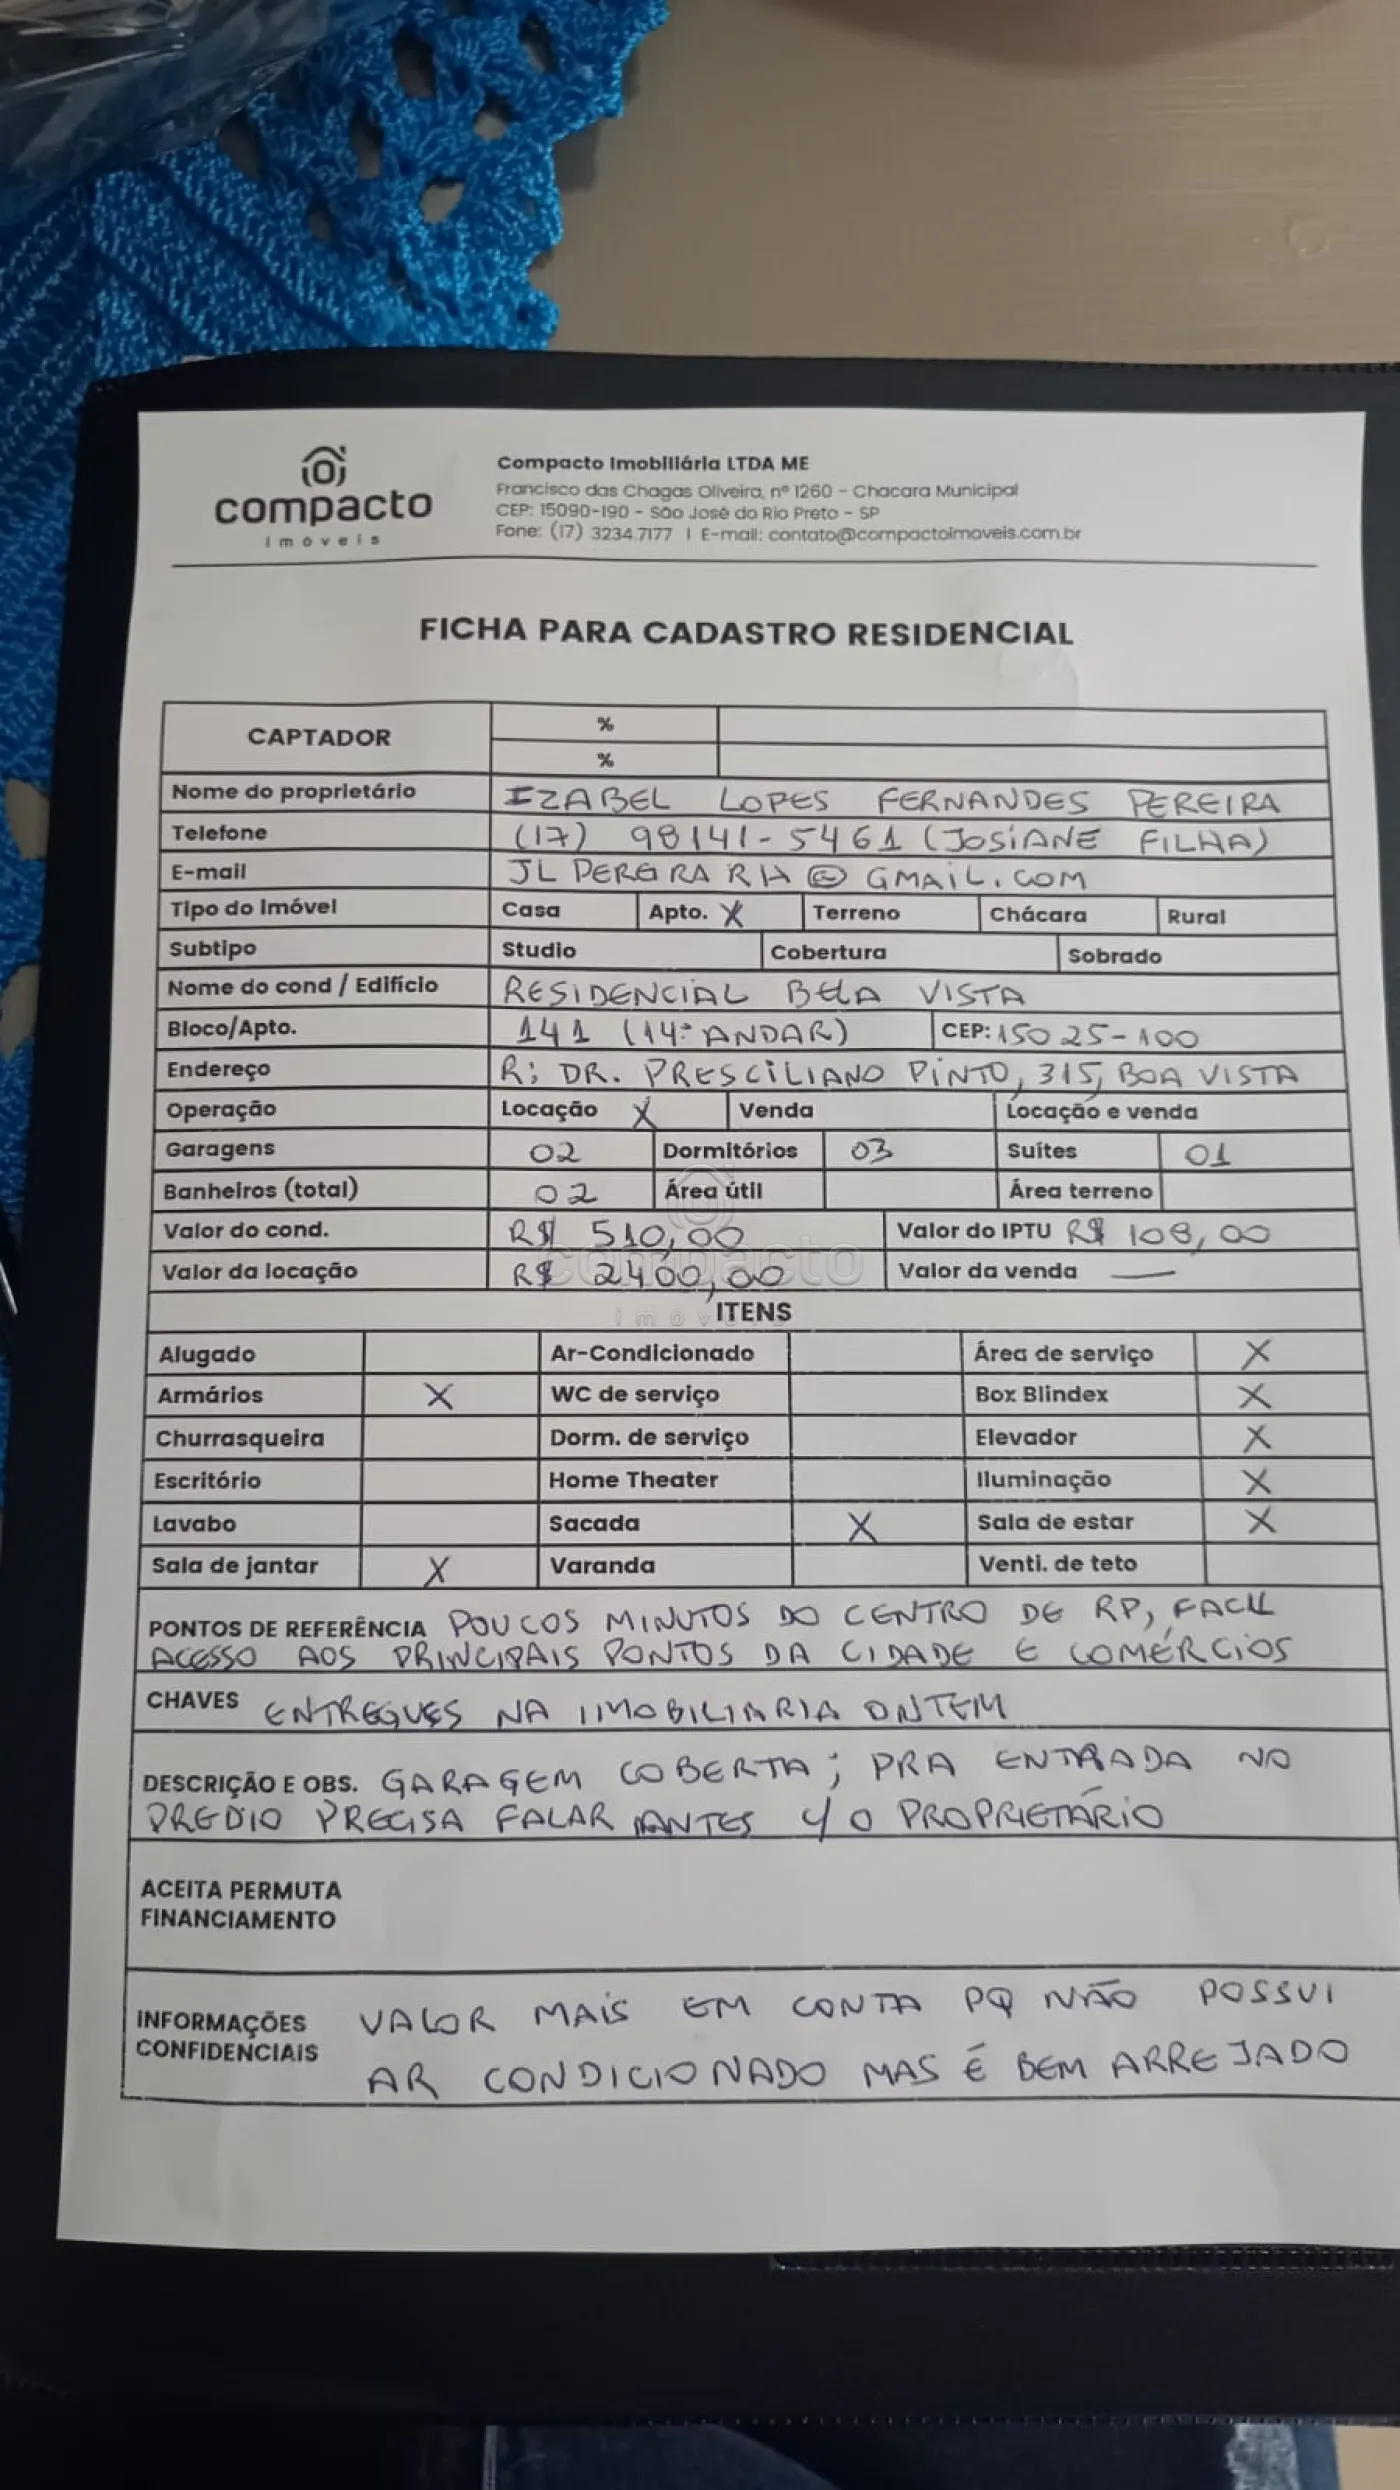 compacto
imóveis
Compacto Imobiliária LTDA ME
Francisco das Chagas Oliveira, nº 1260 - Chacara Municipal
CEP: 15090-190 - São José do Rio Preto - SP
Fone: (17) 3234.7177 | E-mail: contato@compactoimoveis.com.br
FICHA PARA CADASTRO RESIDENCIAL
CAPTADOR %
%
Nome do proprietário IZABEL LOPES FERNANDES PEREIRA
Telefone (17) 98141-5461 (JOSIANE FILHA)
E-mail JLPEREIRARH@GMAIL.COM
Tipo do Imóvel Casa Apto. X Terreno Chácara Rural
Subtipo Studio Cobertura Sobrado
Nome do cond / Edifício RESIDENCIAL BELA VISTA
Bloco/Apto. 141 (14º ANDAR) CEP: 15025-100
Endereço R: DR. PRESCILIANO PINTO, 315, BOA VISTA
Operação Locação X Venda Locação e venda
Garagens 02 Dormitórios 03 Suítes 01
Banheiros (total) 02 Área útil Área terreno
Valor do cond. R$ 510,00 Valor do IPTU R$ 108,00
Valor da locação R$ 2400,00 Valor da venda —
compacto
imóveis
ITENS
Alugado Ar-Condicionado Área de serviço X
Armários X WC de serviço Box Blindex X
Churrasqueira Dorm. de serviço Elevador X
Escritório Home Theater Iluminação X
Lavabo Sacada X Sala de estar X
Sala de jantar X Varanda Venti. de teto
PONTOS DE REFERÊNCIA POUCOS MINUTOS DO CENTRO DE RP, FACIL
ACESSO AOS PRINCIPAIS PONTOS DA CIDADE E COMÉRCIOS
CHAVES ENTREGUES NA IIMOBILIARIA ONTEM
DESCRIÇÃO E OBS. GARAGEM COBERTA; PRA ENTRADA NO
PREDIO PRECISA FALAR ANTES C/ O PROPRIETÁRIO
ACEITA PERMUTA
FINANCIAMENTO
INFORMAÇÕES CONFIDENCIAIS VALOR MAIS EM CONTA PQ NÃO POSSUI
AR CONDICIONADO MAS É BEM ARREJADO